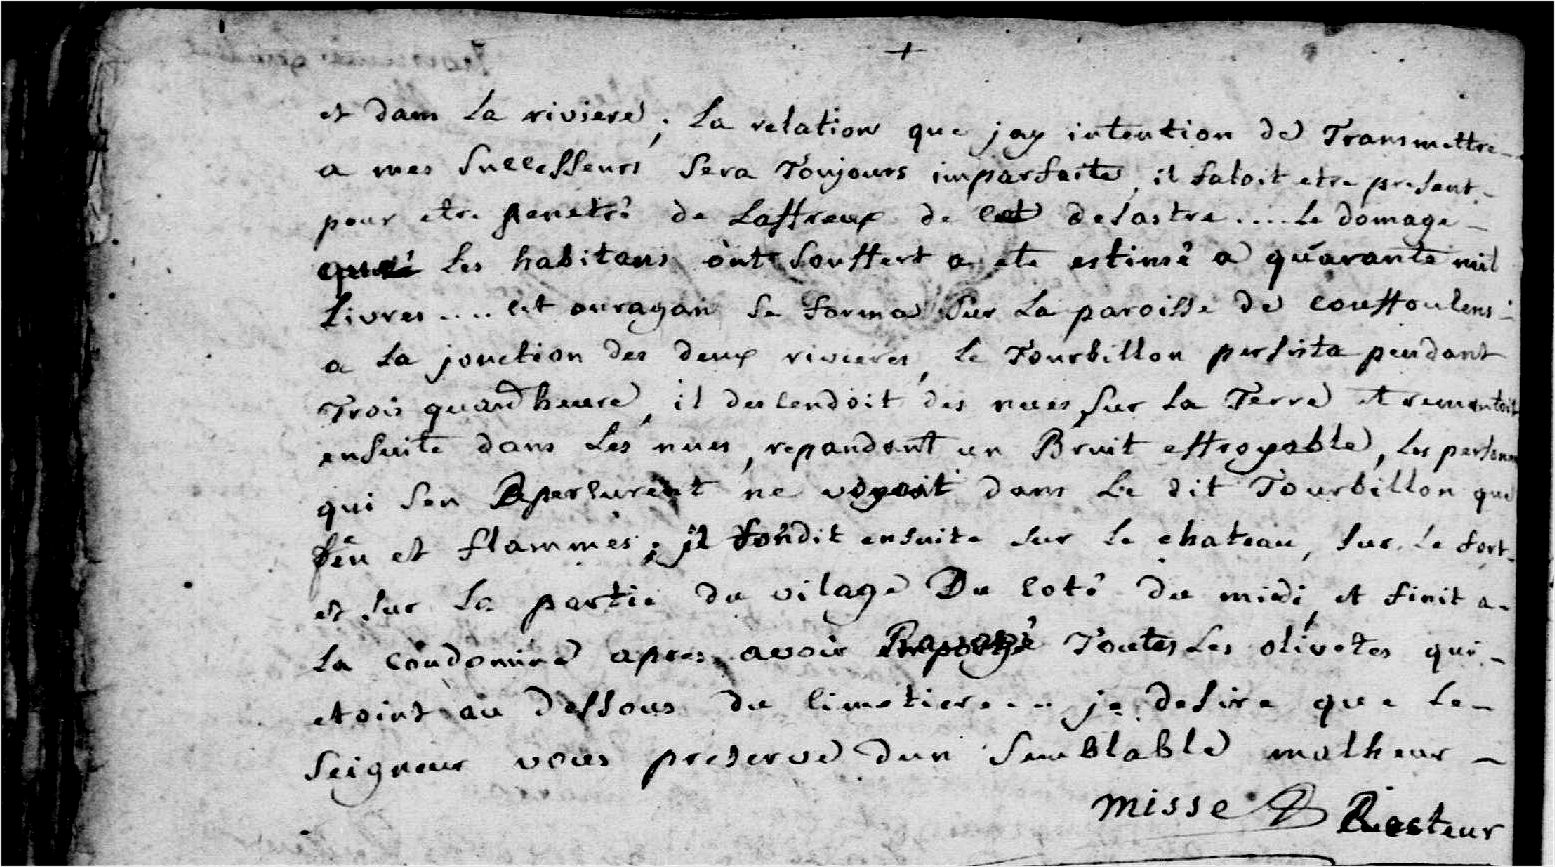 et dans la riviere, la relation que jay intention de Transmettre
a mes successeurs sera Toujours imparfaite, il faloit etre present
pour etre penetré de Laffreux de cet desastre .... le domage
que les habitans ont souffert a ete estimé a quarante mil
Livres .... cet ouragan se forma sur La paroisse de couffoulens
a La jonction des deux rivieres, le Tourbillon persista pendant
Trois quard heure, il descendoit des nues sur la Terre et remontoit
ensuite dans Les nues, repandent un Bruit effroyable, les personnes
qui sen aperçurent ne voyoit dans Le dit Tourbillon que
feu et flammes; il fondit ensuite sur le chateau, sur le fort
et sur la partie du vilage Du coté du midi, et finit a
la coudomine apres avoir Toutes Les olivetes qui
etoint au dessous du cimetiere ... je desire que le
seigneur vous preserve dun semblable malheur
misse Recteur